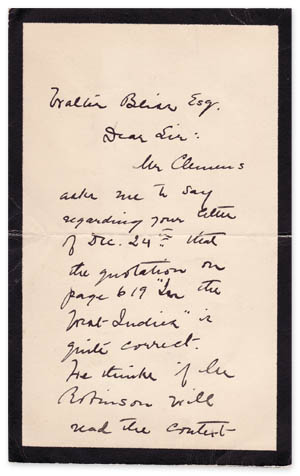 Walter Bliss Esq.
Dear Sir:
Mr Clemens
asks me to say
regarding your letter
of Dec. 24th that
the quotation on
page 619 "In the
West-Indies" is
quite correct.
He thinks if Mr
Robinson will
read the context